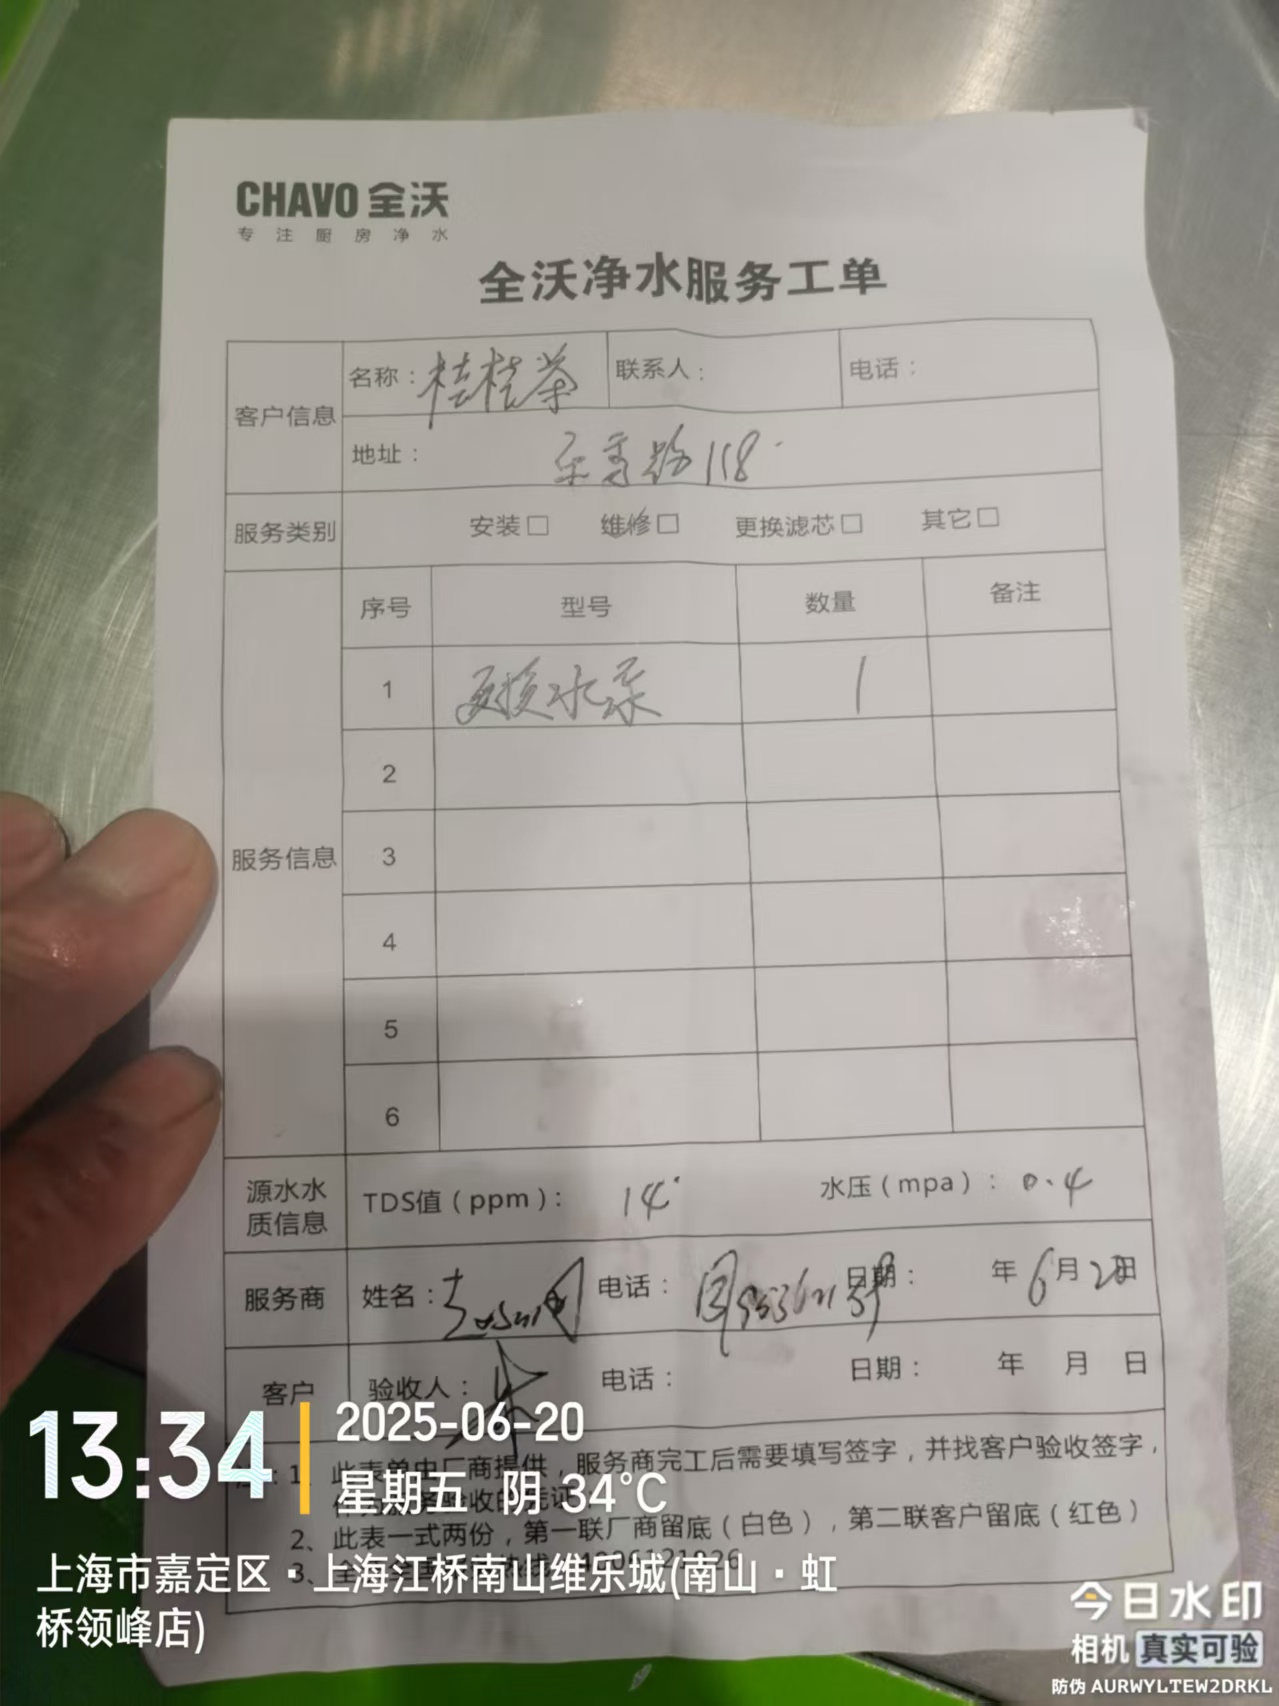 CHAVO 全沃
专注厨房净水
全沃净水服务工单
客户信息 名称：桂桂茶 联系人： 电话：
地址： 乐秀路118
服务类别 安装□ 维修□ 更换滤芯□ 其它□
服务信息 序号 型号 数量 备注
1 更换水泵 1
2
3
4
5
6
源水水质信息 TDS值（ppm）： 14 水压（mpa）： 0.4
服务商 姓名： 电话： 日期： 年 6月20日
客户 验收人： 电话： 日期： 年 月 日
1、此表单由厂商提供，服务商完工后需要填写签字，并找客户验收签字，
2、此表一式两份，第一联厂商留底（白色），第二联客户留底（红色）
3、
13:34
2025-06-20
星期五 阴 34℃
上海市嘉定区·上海江桥南山维乐城(南山·虹
桥领峰店)
今日水印
相机 真实可验
防伪 AURWYLTEW2DRKL